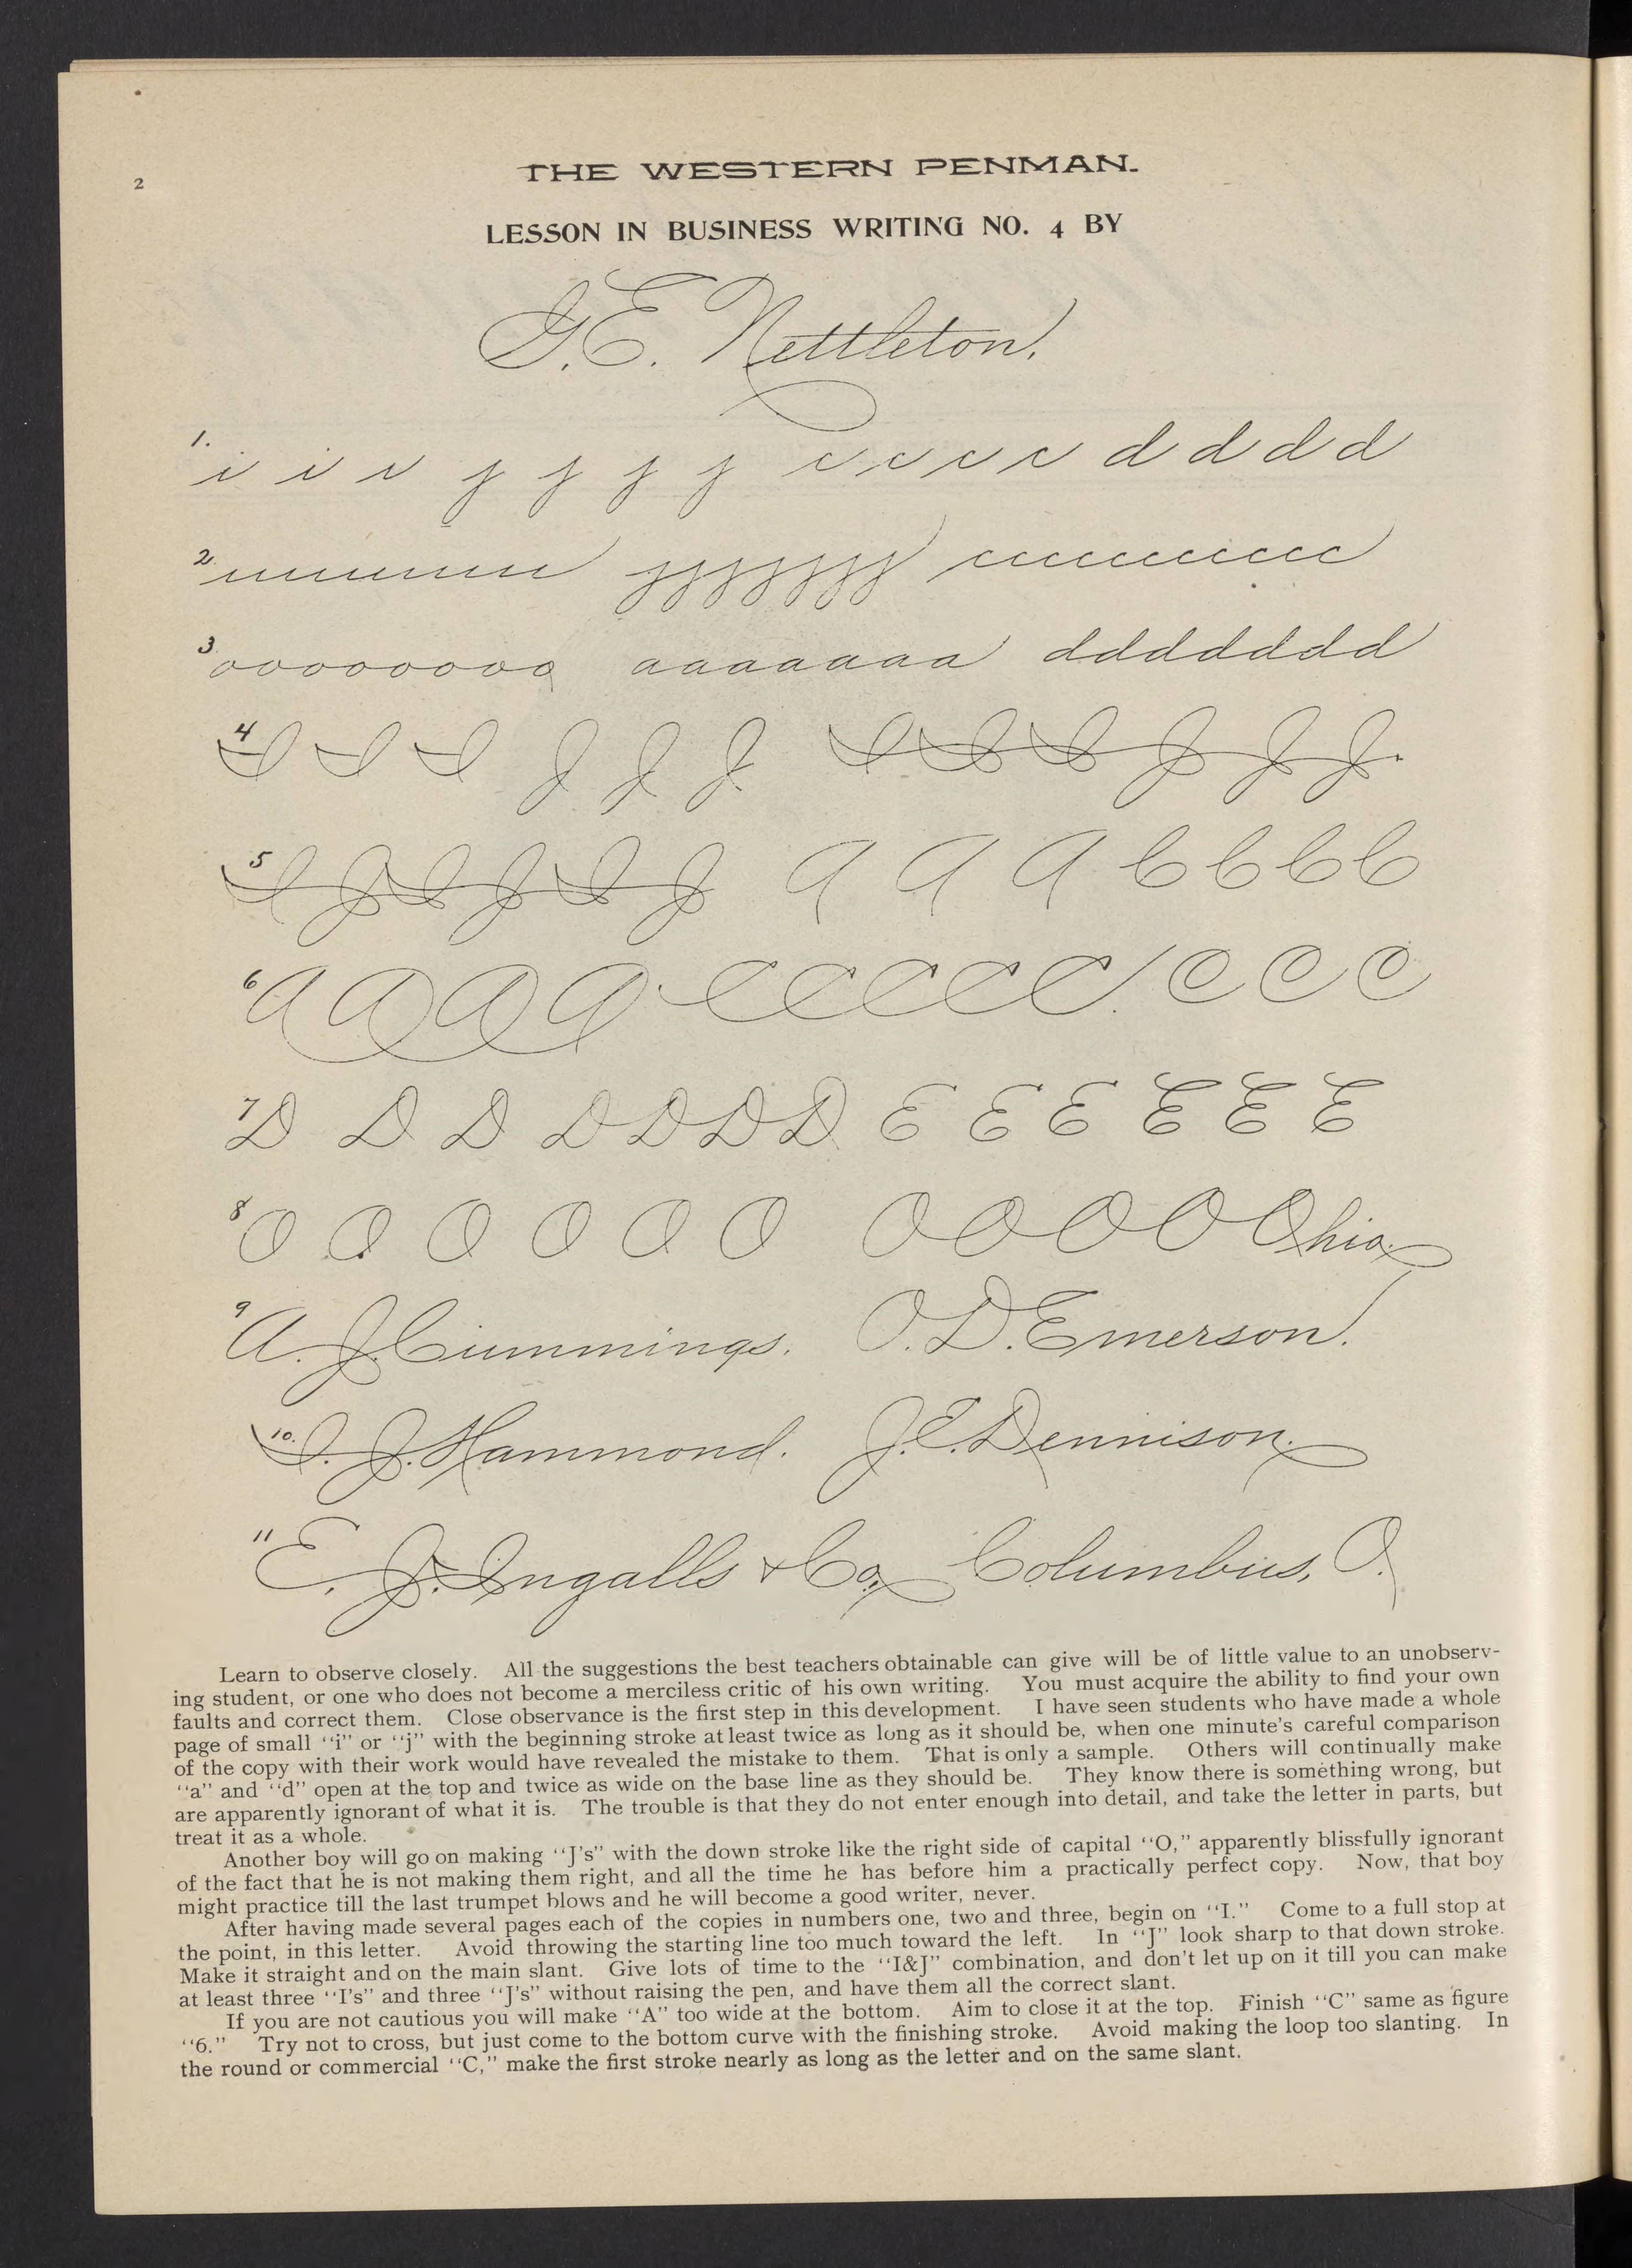 2
THE WESTERN PENMAN.
LESSON IN BUSINESS WRITING NO. 4 BY
G. E. Nettleton.
1. i i i j j j j c c c c d d d d
2. uuuuuuu jjjjjjjj ccccccccc
3 ooooooooo aaaaaaaa dddddddd
4 I I I J J J I I I J J J.
5 I J I J I J A A A C C C C
6 A A A A C C C C C C C C
7 D D D D D D D E E E E E E
8 O O O O O O O O O O Ohio.
9 A. J. Cummings. O. D. Emerson.
10. I. J. Hammond. J. E. Dennison.
11 E. J. Ingalls & Co., Columbus, O.
Learn to observe closely. All the suggestions the best teachers obtainable can give will be of little value to an unobserv-
ing student, or one who does not become a merciless critic of his own writing. You must acquire the ability to find your own
faults and correct them. Close observance is the first step in this development. I have seen students who have made a whole
page of small "i" or "j" with the beginning stroke at least twice as long as it should be, when one minute's careful comparison
of the copy with their work would have revealed the mistake to them. That is only a sample. Others will continually make
"a" and "d" open at the top and twice as wide on the base line as they should be. They know there is something wrong, but
are apparently ignorant of what it is. The trouble is that they do not enter enough into detail, and take the letter in parts, but
treat it as a whole.
Another boy will go on making "J's" with the down stroke like the right side of capital "O," apparently blissfully ignorant
of the fact that he is not making them right, and all the time he has before him a practically perfect copy. Now, that boy
might practice till the last trumpet blows and he will become a good writer, never.
After having made several pages each of the copies in numbers one, two and three, begin on "I." Come to a full stop at
the point, in this letter. Avoid throwing the starting line too much toward the left. In "J" look sharp to that down stroke.
Make it straight and on the main slant. Give lots of time to the "I&J" combination, and don't let up on it till you can make
at least three "I's" and three "J's" without raising the pen, and have them all the correct slant.
If you are not cautious you will make "A" too wide at the bottom. Aim to close it at the top. Finish "C" same as figure
"6." Try not to cross, but just come to the bottom curve with the finishing stroke. Avoid making the loop too slanting. In
the round or commercial "C," make the first stroke nearly as long as the letter and on the same slant.